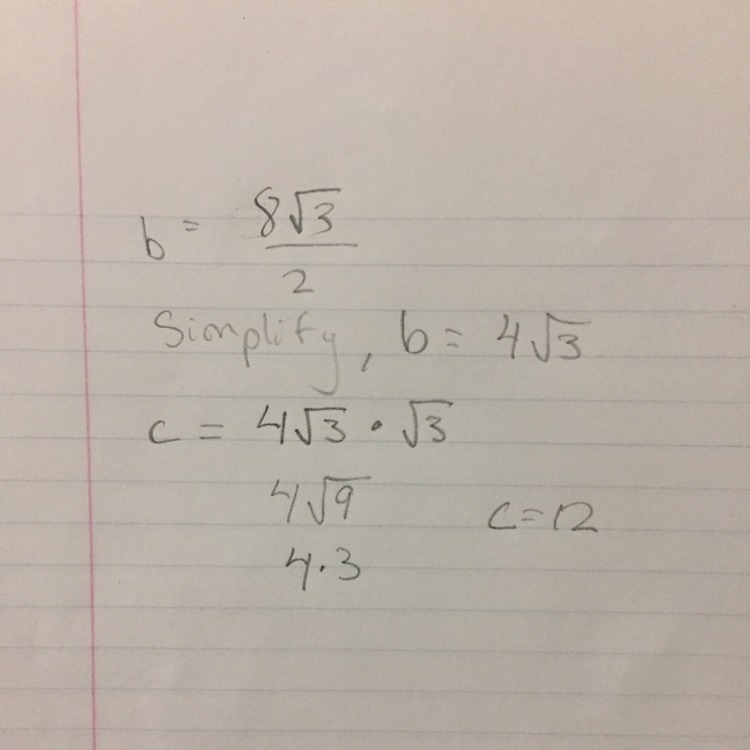 b = 8√3
2
Simplify, b = 4√3
c = 4√3 · √3
4√9 c=12
4·3